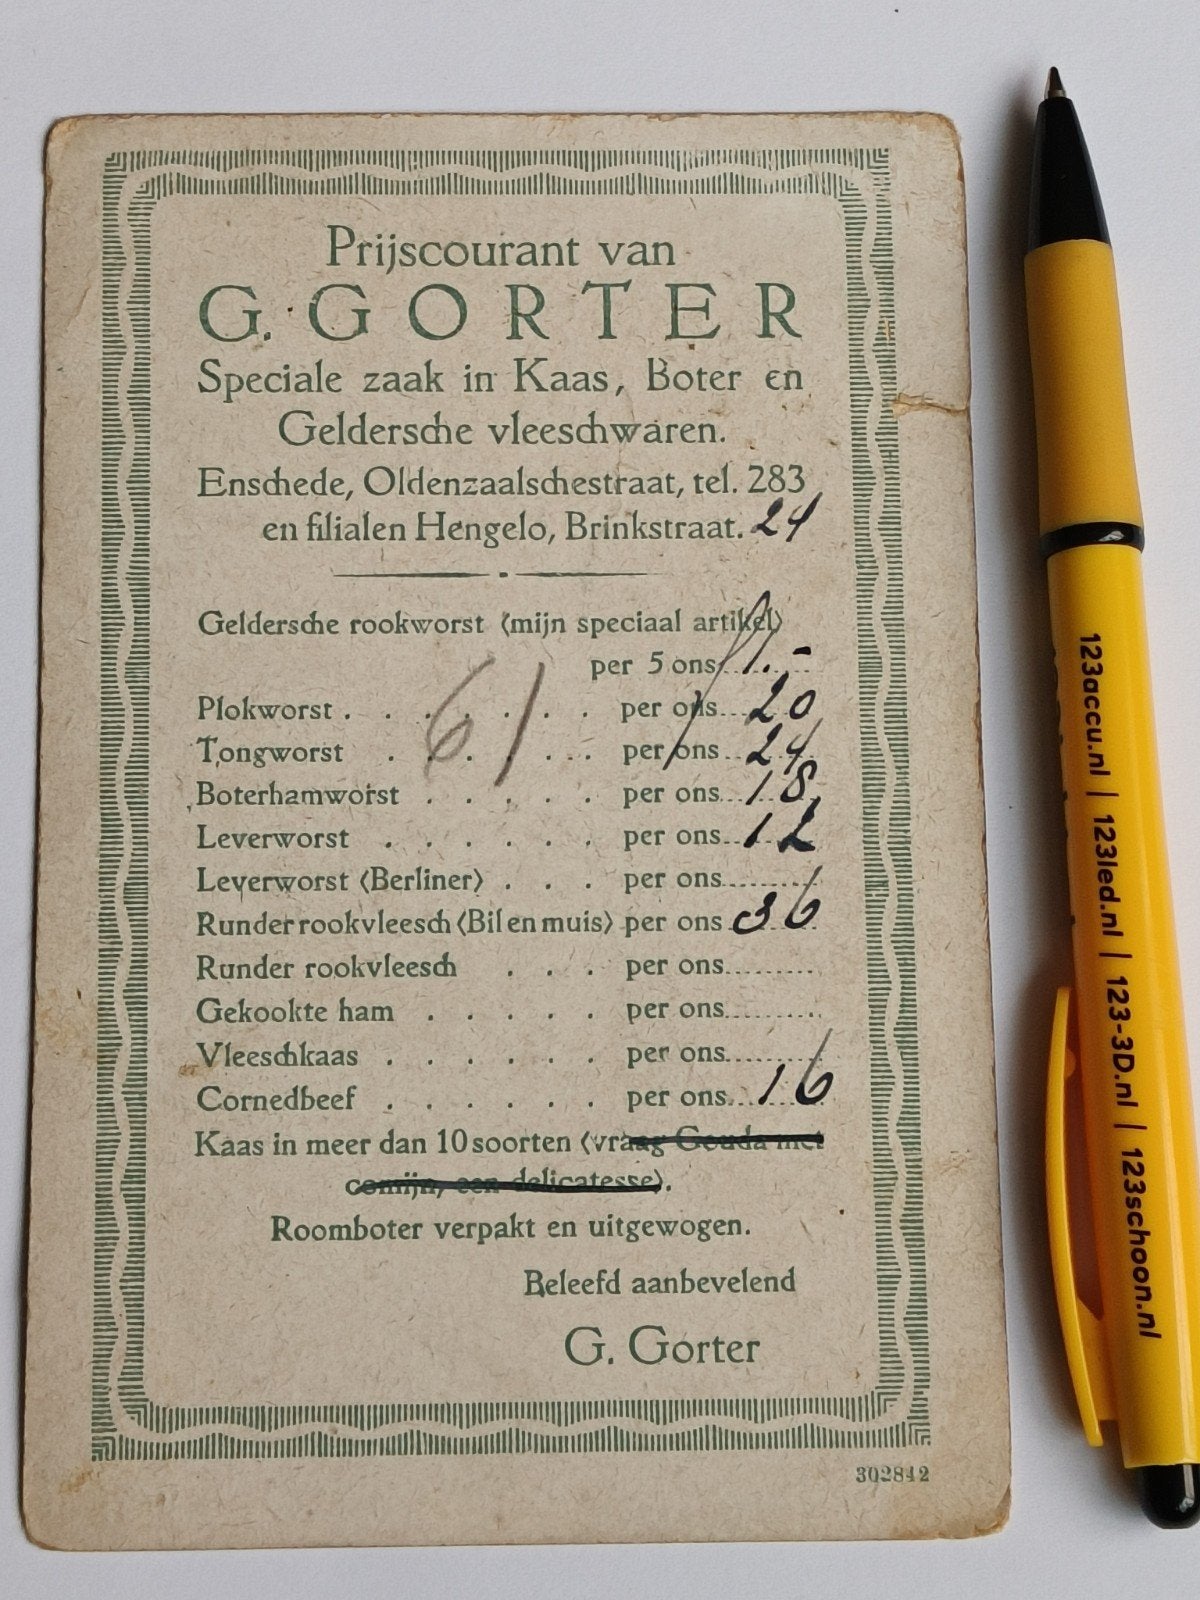 Prijscourant van
G. GORTER
Speciale zaak in Kaas, Boter en
Geldersche vleeschwaren.
Enschede, Oldenzaalschestraat, tel. 283
en filialen Hengelo, Brinkstraat. 24
Geldersche rookworst (mijn speciaal artikel)
per 5 ons f 1.-
61
Plokworst . . . . . . . per ons... 20
Tongworst . . . . . . per ons... 24
Boterhamworst . . . . . per ons... 18
Leverworst . . . . . . per ons... 12
Leverworst (Berliner) . . . per ons.........
Runderrookvleesch (Bil en muis) per ons 36
Runder rookvleesch . . . per ons.........
Gekookte ham . . . . . per ons.........
Vleeschkaas . . . . . . per ons.........
Cornedbeef . . . . . . per ons... 16
Kaas in meer dan 10 soorten (vraag Gouda met
comijn, een delicatesse).
Roomboter verpakt en uitgewogen.
Beleefd aanbevelend
G. Gorter
302842
123accu.nl | 123led.nl | 123-3D.nl | 123schoon.nl